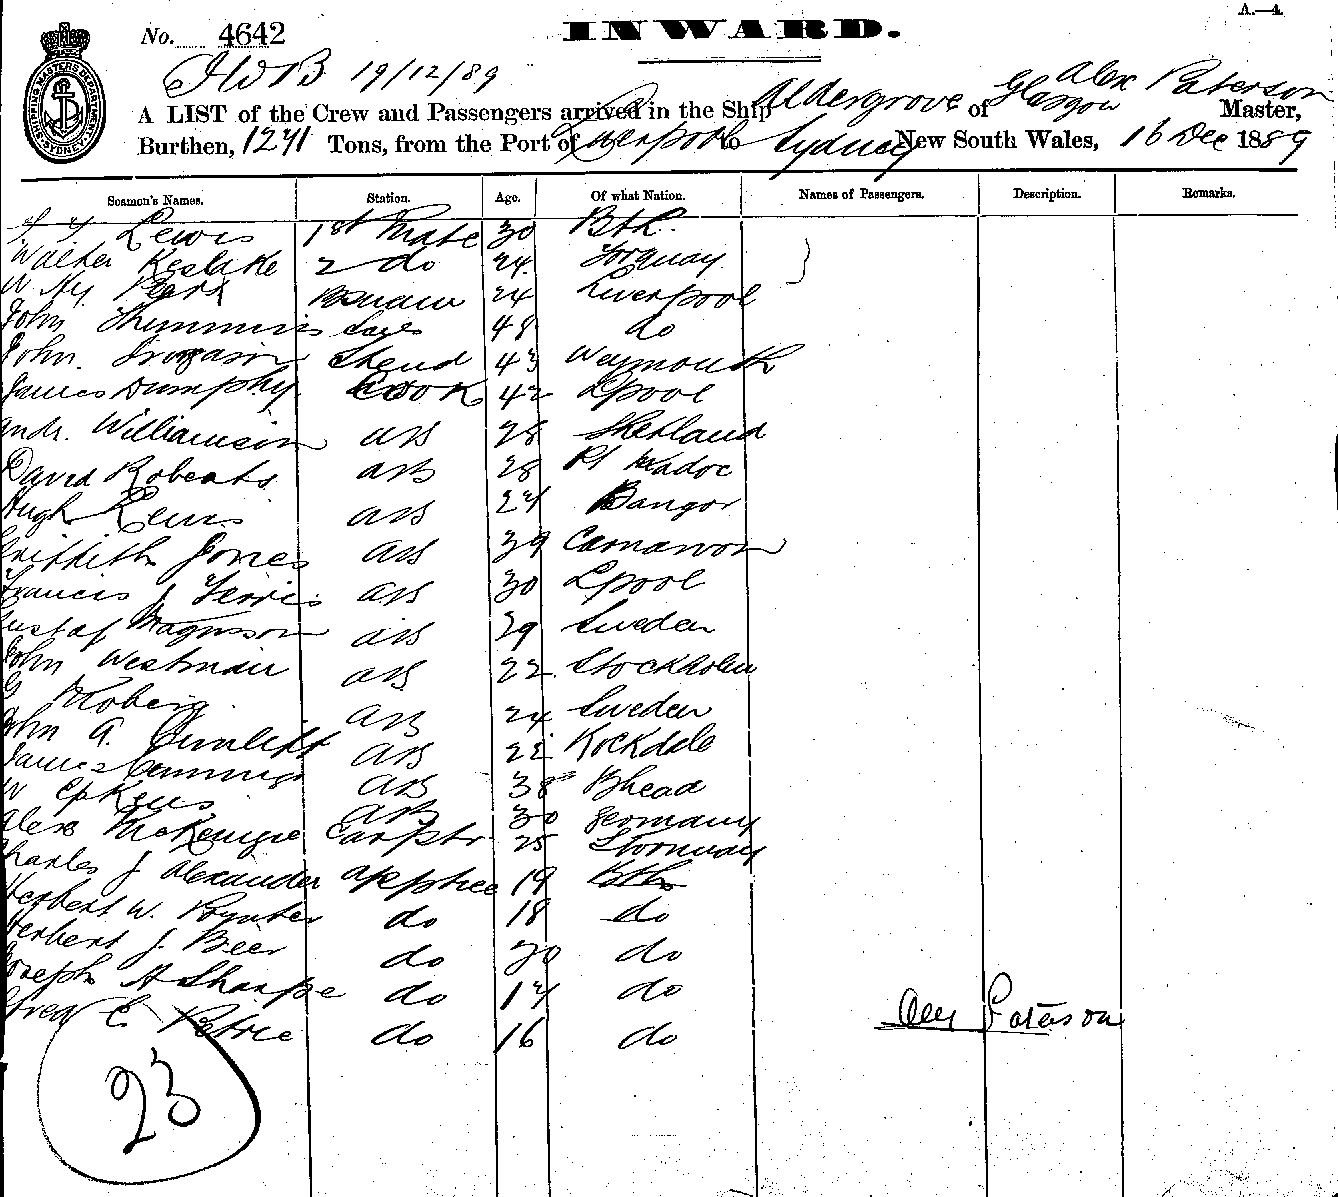 A.—4.
No. 4642
INWARD.
SHIPPING MASTERS DEPARTMENT SYDNEY
19/12/89
A LIST of the Crew and Passengers arrived in the Ship Aldergrove of Glasgow Alex Paterson Master,
Burthen, 1241 Tons, from the Port of Liverpool to Sydney New South Wales, 16 Dec 1889
Seamen's Names. Station. Age. Of what Nation. Names of Passengers. Description. Remarks.
Lewis 1st Mate 30 Bth.
Walter Keslake 2 do 24 Torquay
24 Liverpool
John 48 do
John Stewd 43 Weymouth
James Dumphy Cook 42 Lpool
Andr. Williamson AB 28 Shetland
David Roberts AB 28 Pt Madoc
Hugh Lewis AB 24 Bangor
Griffith Jones AB 39 Carnarvon
Francis J AB 30 Lpool
Gustaf Magnusson AB 29 Sweden
John Westman AB 22 Stockholm
G AB 24 Sweden
John A. AB 22 Rockdale
James AB 38 Bhead
W AB 30 Germany
Alex McKenzie Carptr 25 Stornway
Charles J Alexander appptice 19 Bth
Herbert W. Poynter do 18 do
Herbert J. Beer do 20 do
Joseph H Sharpe do 17 do
Fred E. Petrie do 16 do
Alex Paterson
23